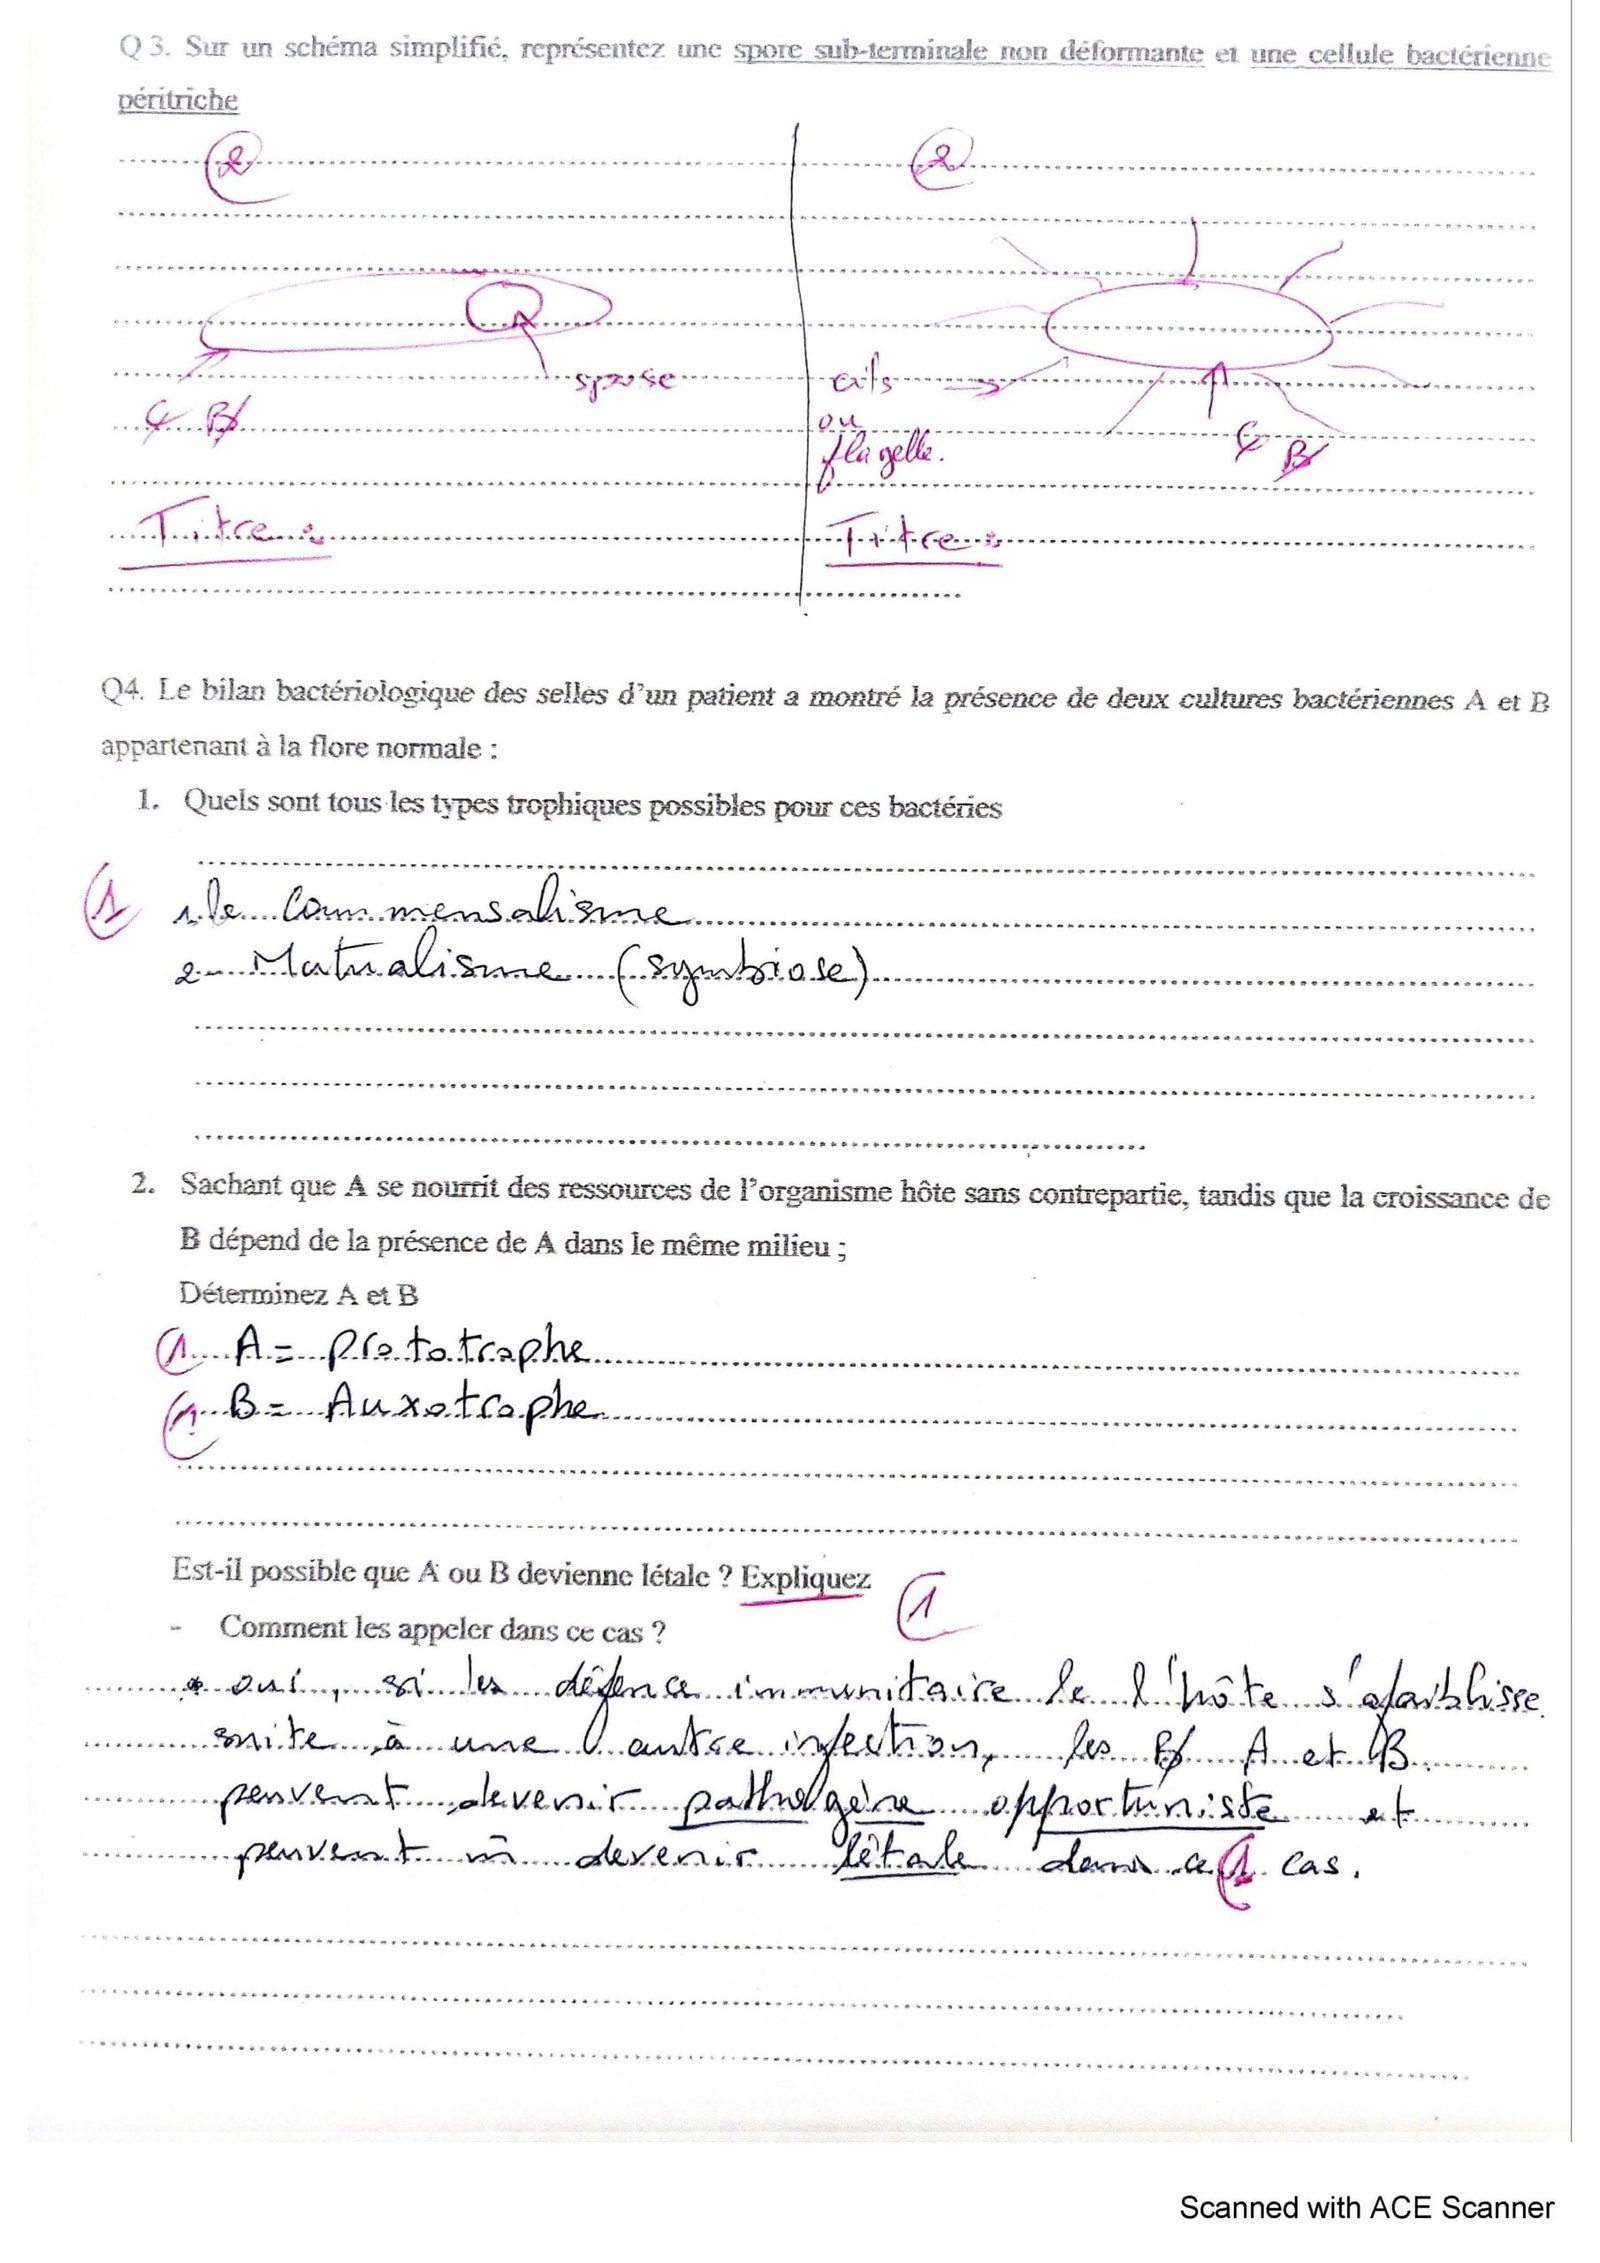 Q 3. Sur un schéma simplifié, représentez une spore sub-terminale non déformante et une cellule bactérienne
péritriche
2
2
spore
cils
ou
flagelle.
B
B
Titre :
Titre :
Q4. Le bilan bactériologique des selles d'un patient a montré la présence de deux cultures bactériennes A et B
appartenant à la flore normale :
1. Quels sont tous les types trophiques possibles pour ces bactéries
1
1. le Commensalisme
2- Mutualisme (symbiose)
2. Sachant que A se nourrit des ressources de l'organisme hôte sans contrepartie, tandis que la croissance de
B dépend de la présence de A dans le même milieu ;
Déterminez A et B
1 A = prototrophe
1 B = Auxotrophe
Est-il possible que A ou B devienne létale ? Expliquez
1
- Comment les appeler dans ce cas ?
* oui, si les défence immunitaire le l'hôte s'afaiblisse
suite à une autre infection, les B A et B
peuvent devenir pathogène opportuniste et
peuvent m̄ devenir létale dans ce 1 cas.
Scanned with ACE Scanner